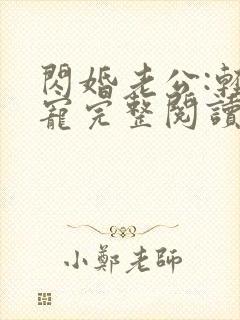 閃婚老公:輕
寵完整閱讀
小鄭老師